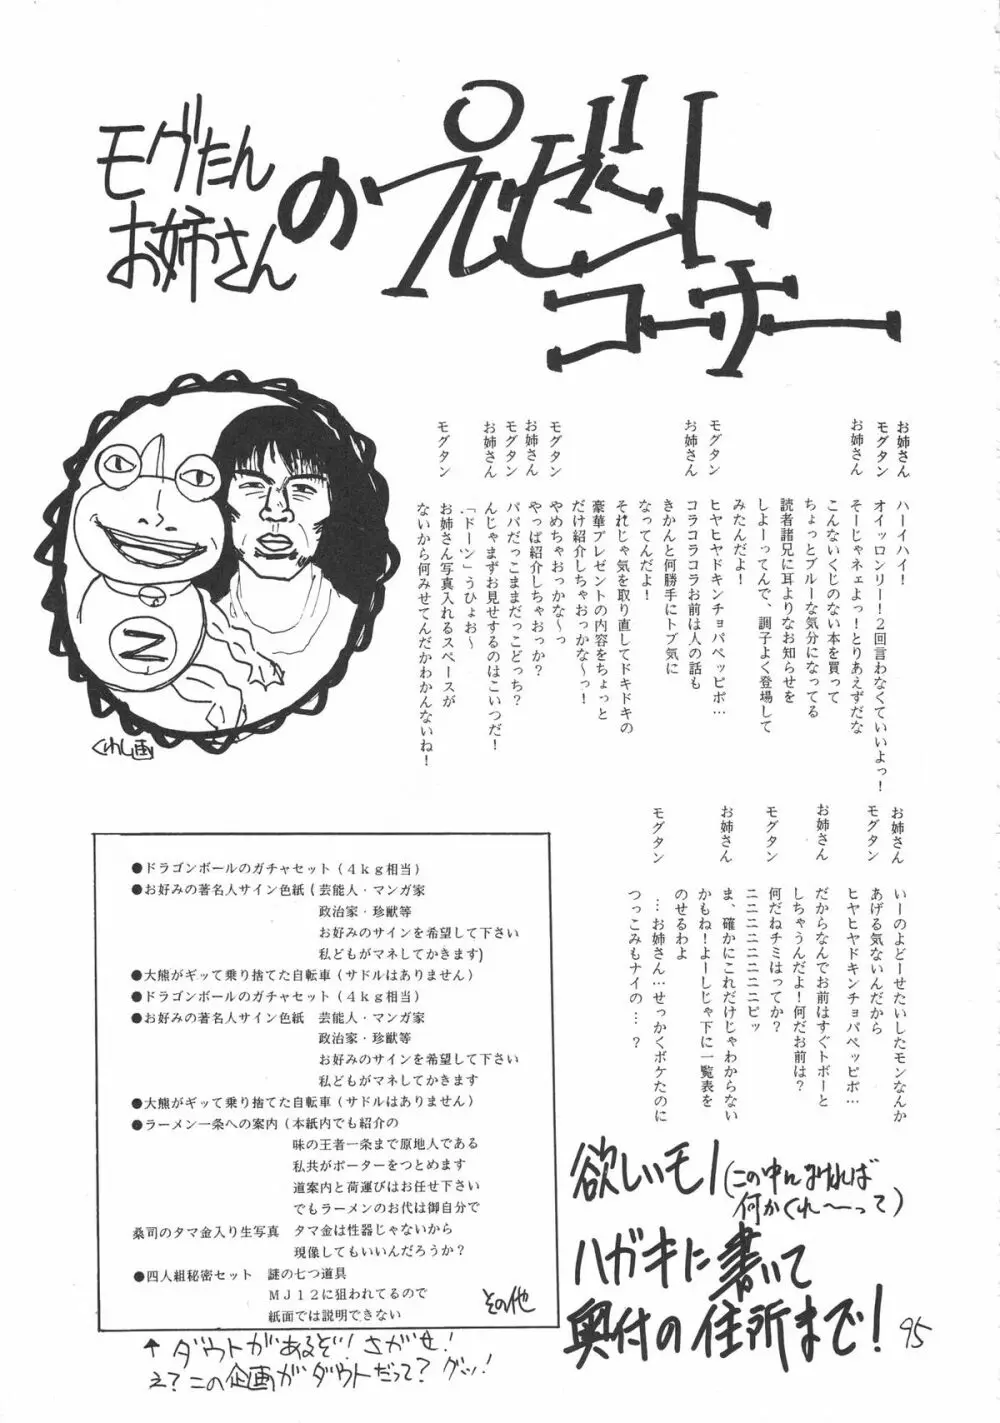 モグたん
お姉さん
の
プレゼント
コーナー
お姉さん　ハーイハイ！
モグタン　オイッロンリー！２回言わなくていいよっ！
お姉さん　そーじゃネェよっ！とりあえずだな
こんないくじのない本を買って
ちょっとブルーな気分になってる
読者諸兄に耳よりなお知らせを
しよーってんで、調子よく登場して
みたんだよ！
モグタン　ヒヤヒヤドキンチョパペッピポ…
お姉さん　コラコラコラお前は人の話も
きかんと何勝手にトブ気に
なってんだよ！
それじゃ気を取り直してドキドキの
豪華プレゼントの内容をちょっと
だけ紹介しちゃおっかな〜っ！
モグタン　やめちゃおっかな〜っ
お姉さん　やっぱ紹介しちゃおっか？
モグタン　パパだっこままだっこどっち？
お姉さん　んじゃまずお見せするのはこいつだ！
「ドーン」うひょお〜
モグタン　お姉さん写真入れるスペースが
ないから何みせてんだかわかんないね！
くわし画
お姉さん　いーのよどーせたいしたモンなんか
あげる気ないんだから
モグタン　ヒヤヒヤドキンチョパペッピポ…
お姉さん　だからなんでお前はすぐトボーと
しちゃうんだよ！何だお前は？
モグタン　何だねチミはってか？
ニニニニニニニピッ
お姉さん　ま、確かにこれだけじゃわからない
かもね！よーしじゃ下に一覧表を
のせるわよ
モグタン　…お姉さん…せっかくボケたのに
つっこみもナイの…？
●ドラゴンボールのガチャセット（４ｋｇ相当）
●お好みの著名人サイン色紙（芸能人・マンガ家
政治家・珍獣等
お好みのサインを希望して下さい
私どもがマネしてかきます)
●大熊がギッて乗り捨てた自転車（サドルはありません）
●ドラゴンボールのガチャセット（４ｋｇ相当）
●お好みの著名人サイン色紙　芸能人・マンガ家
政治家・珍獣等
お好みのサインを希望して下さい
私どもがマネしてかきます
●大熊がギッて乗り捨てた自転車（サドルはありません）
●ラーメン一条への案内（本紙内でも紹介の
味の王者一条まで原地人である
私共がポーターをつとめます
道案内と荷運びはお任せ下さい
でもラーメンのお代は御自分で
桑司のタマ金入り生写真　タマ金は性器じゃないから
現像してもいいんだろうか？
●四人組秘密セット　謎の七つ道具
ＭＪ１２に狙われてるので
紙面では説明できない
その他
↑ダウトがあるぞ！さがせ！
え？この企画がダウトだって？グッ！
欲しいモノ(この中になければ
何かくれ〜って)
ハガキに書いて
奥付の住所まで！
95